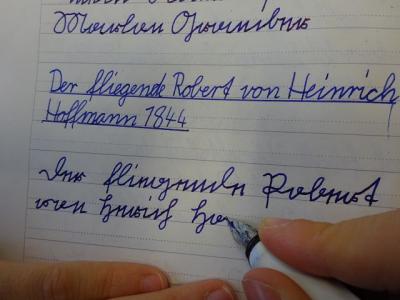 Der fliegende Robert von Heinrich
Hoffmann 1844
Der fliegende Robert
von Heinrich Ho